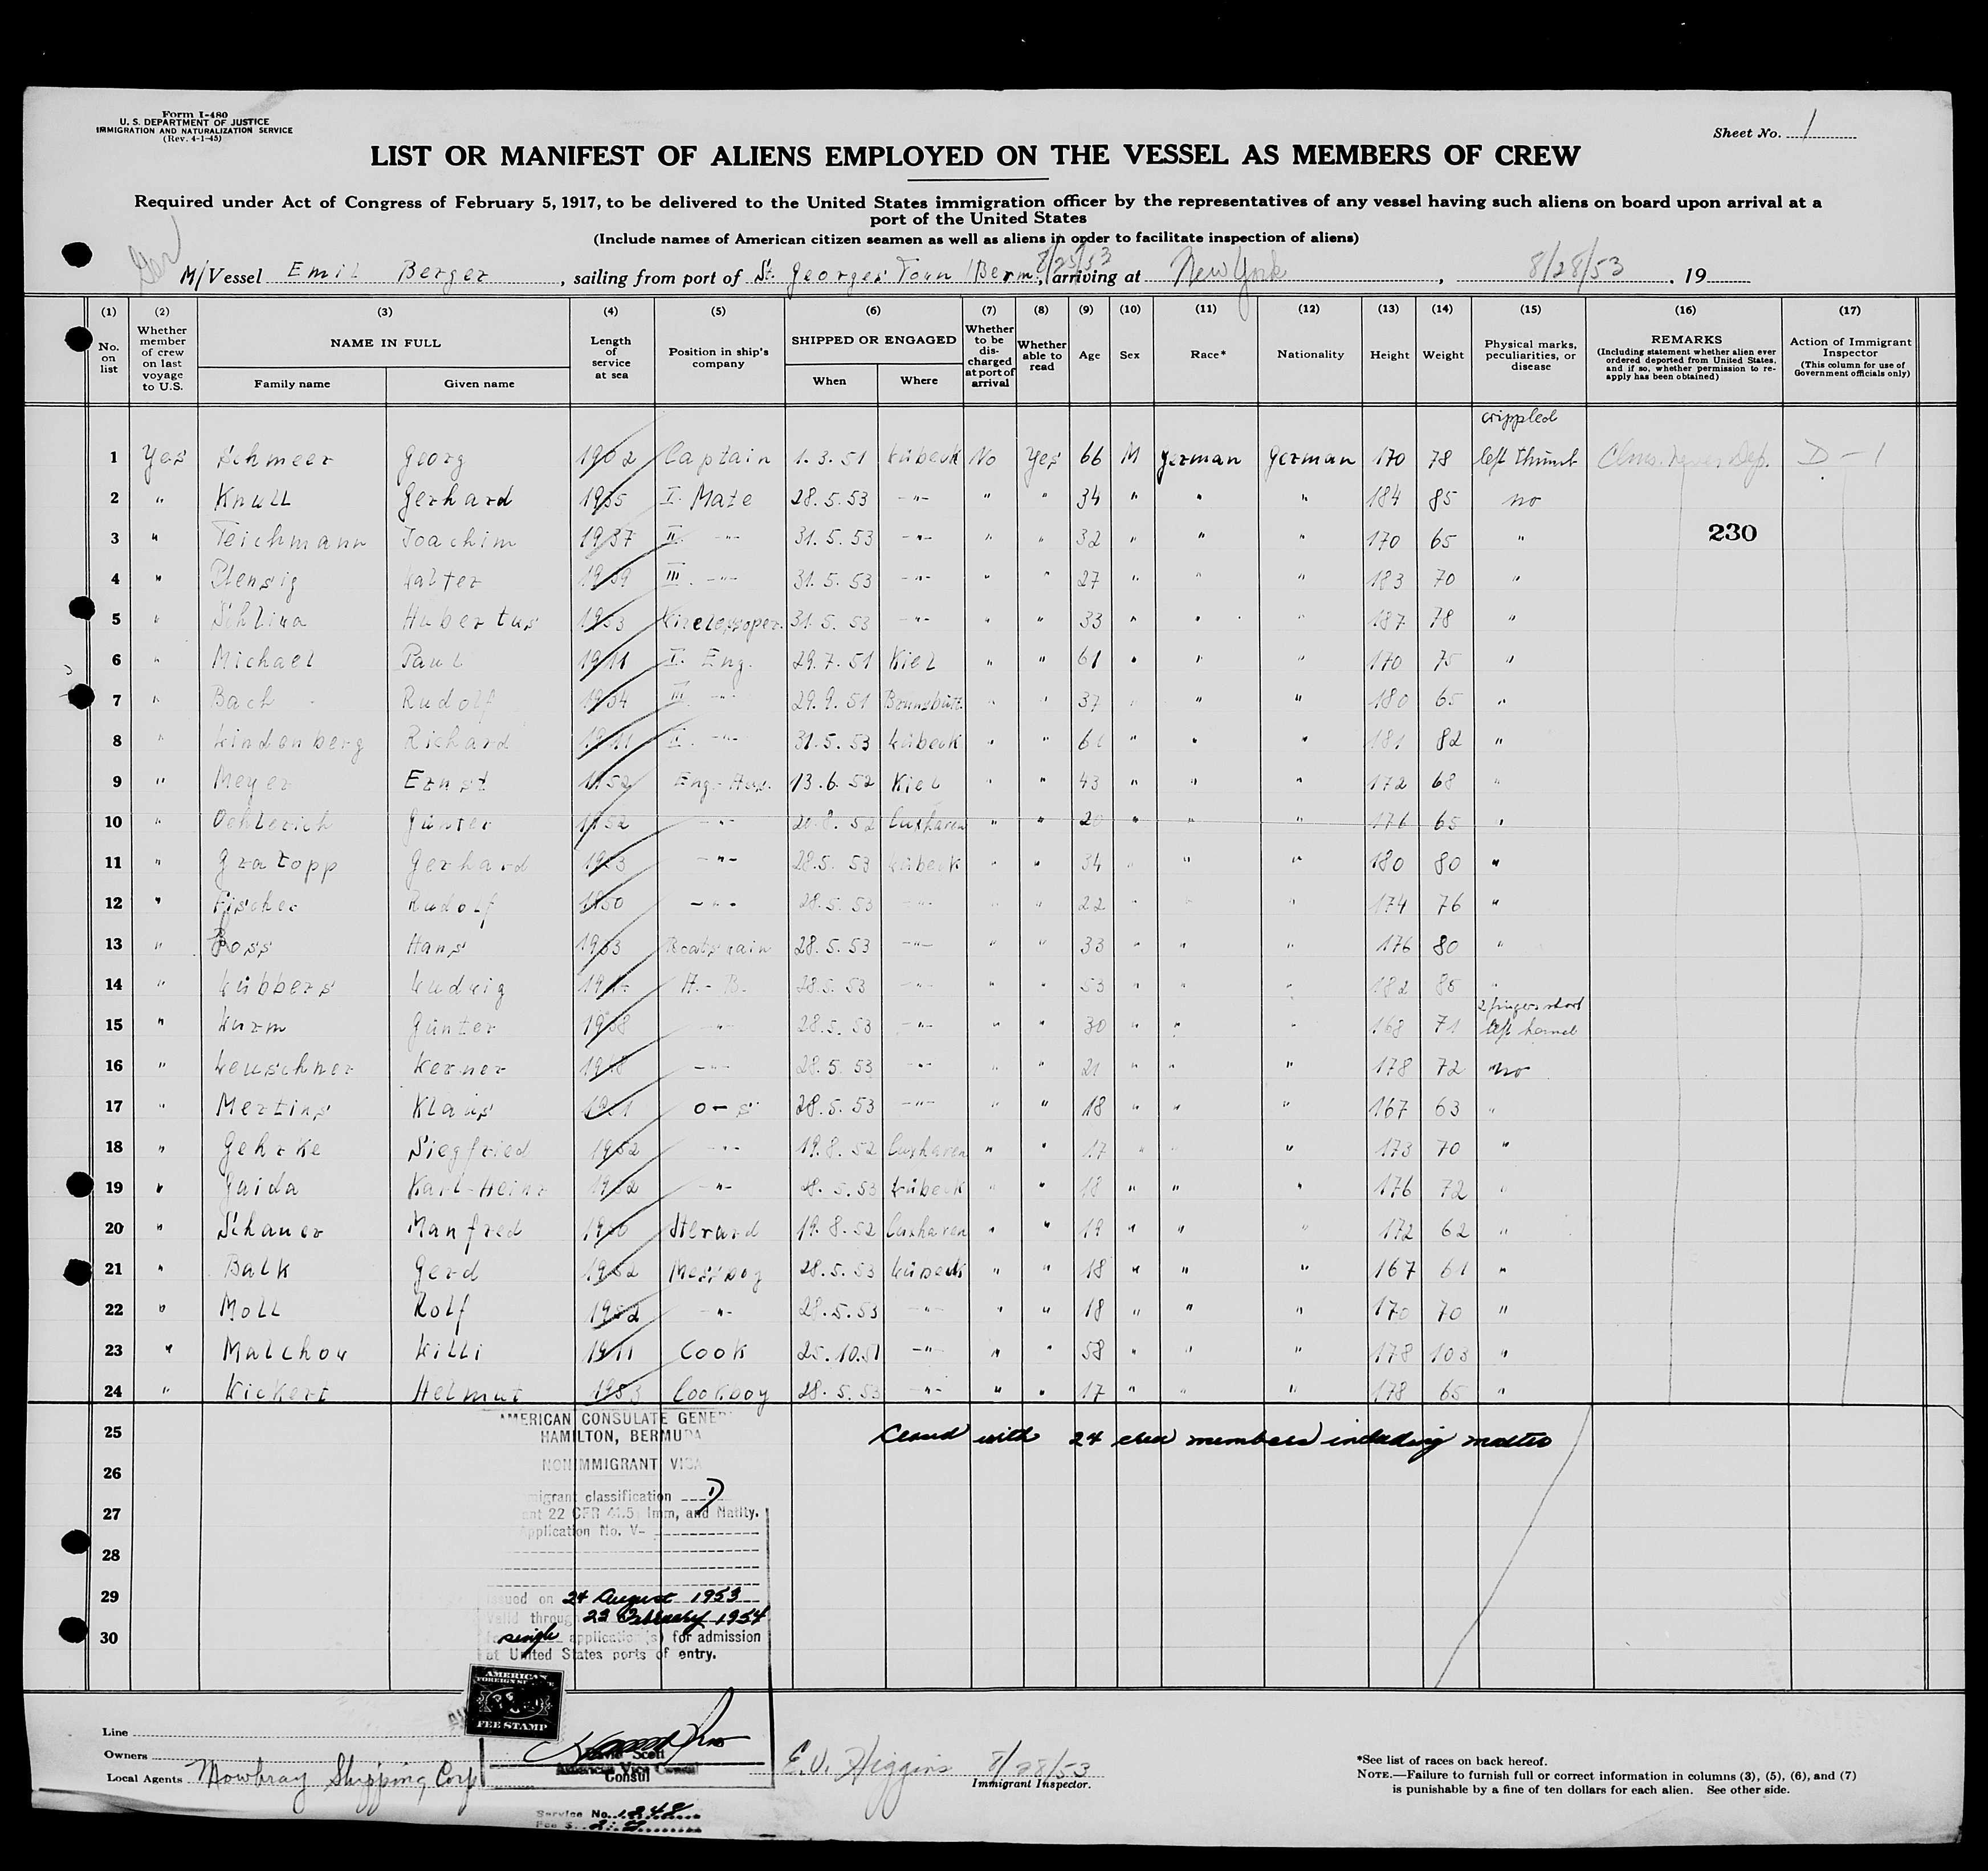 Form I-480
U. S. DEPARTMENT OF JUSTICE
IMMIGRATION AND NATURALIZATION SERVICE
(Rev. 4-1-45)
Sheet No. 1
LIST OR MANIFEST OF ALIENS EMPLOYED ON THE VESSEL AS MEMBERS OF CREW
Required under Act of Congress of February 5, 1917, to be delivered to the United States immigration officer by the representatives of any vessel having such aliens on board upon arrival at a
port of the United States
(Include names of American citizen seamen as well as aliens in order to facilitate inspection of aliens)
Ger
8/25/53
M/Vessel Emil Berger, sailing from port of St. Georges Town (Berm., arriving at New York, 8/28/53, 19
(1) (2) (3) (4) (5) (6) (7) (8) (9) (10) (11) (12) (13) (14) (15) (16) (17)
No. on list
Whether member of crew on last voyage to U.S.
NAME IN FULL
Family name Given name
Length of service at sea
Position in ship's company
SHIPPED OR ENGAGED
When Where
Whether to be discharged at port of arrival
Whether able to read
Age
Sex
Race*
Nationality
Height
Weight
Physical marks, peculiarities, or disease
REMARKS
(Including statement whether alien ever ordered deported from United States, and if so, whether permission to re-apply has been obtained)
Action of Immigrant Inspector
(This column for use of Government officials only)
crippled
1 Yes Schmeer Georg 1902 Captain 1. 3. 51 Lübeck No Yes 66 M German German 170 78 left thumb Never Dep. D-1
2 " Knull Gerhard 1935 I. Mate 28. 5. 53 -"- " " 34 " " " 184 85 no
230
3 " Teichmann Joachim 1937 II. -"- 31. 5. 53 -"- " " 32 " " " 170 65 "
4 " Plensig Walter 1939 III. -"- 31. 5. 53 -"- " " 27 " " " 183 70 "
5 " Schliwa Hubertus 1953 Wirelessoper. 31. 5. 53 -"- " " 33 " " " 187 78 "
6 " Michael Paul 1911 I. Eng. 29. 7. 51 Kiel " " 61 " " " 170 75 "
7 " Bach Rudolf 1934 III -"- 29. 9. 51 Brunsbütt. " " 37 " " " 180 65 "
8 " Lindenberg Richard 1911 II. -"- 31. 5. 53 Lübeck " " 61 " " " 181 82 "
9 " Meyer Ernst 1952 Eng.- 13. 6. 52 Kiel " " 43 " " " 172 68 "
10 " Oehlerich Günter 1952 -"- 20. 8. 52 Cuxhaven " " 20 " " " 176 65 "
11 " Gratopp Gerhard 1953 -"- 28. 5. 53 Lübeck " " 34 " " " 180 80 "
12 " Fischer Rudolf 1950 -"- 28. 5. 53 -"- " " 22 " " " 174 76 "
13 " Boss Hans 1953 Boatswain 28. 5. 53 -"- " " 33 " " " 176 80 "
14 " Lübbers Ludwig A.-B. 28. 5. 53 -"- " " 53 " " " 182 85 "
2 fingers short
15 " Wurm Günter 1938 -"- 28. 5. 53 -"- " " 30 " " " 168 71 left hand
16 " Leuschner Werner 1948 -"- 28. 5. 53 -"- " " 21 " " " 178 72 no
17 " Mertins Klaus 1951 O-S 28. 5. 53 -"- " " 18 " " " 167 63 "
18 " Gehrke Siegfried 1952 -"- 19. 8. 52 Cuxhaven " " 17 " " 173 70 "
19 " Guida Karl-Heinz 1952 -"- 28. 5. 53 Lübeck " " 18 " " " 176 72 "
20 " Schauer Manfred 1950 Steward 19. 8. 52 Cuxhaven " " 19 " " " 172 62 "
21 " Balk Gerd 1952 Messboy 28. 5. 53 Lübeck " " 18 " " " 167 61 "
22 " Moll Rolf 1952 -"- 28. 5. 53 -"- " " 18 " " " 170 70 "
23 " Malchow Willi 1911 Cook 25. 10. 51 -"- " " 58 " " " 178 103 "
24 " Wickert Helmut 1953 Cookboy 28. 5. 53 -"- " " 17 " " " 178 65 "
25 Closed with 24 crew members including master
26
27
28
29
30
AMERICAN CONSULATE GENER
HAMILTON, BERMUDA
NONIMMIGRANT VISA
migrant classification D
nt 22 CFR 41.5 Imm. and Natlty.
pplication No. V-
Issued on 24 August 1953
Valid through 23 February 1954
single application(s) for admission
at United States ports of entry.
AMERICAN
FOREIGN SERVICE
FEE STAMP
David Scott
American Vice Consul
Consul
Service No. 1248
Fee $
Line
Owners
Local Agents Mowbray Shipping Corp
E. V. Higgins 8/28/53
Immigrant Inspector.
*See list of races on back hereof.
NOTE.—Failure to furnish full or correct information in columns (3), (5), (6), and (7)
is punishable by a fine of ten dollars for each alien. See other side.